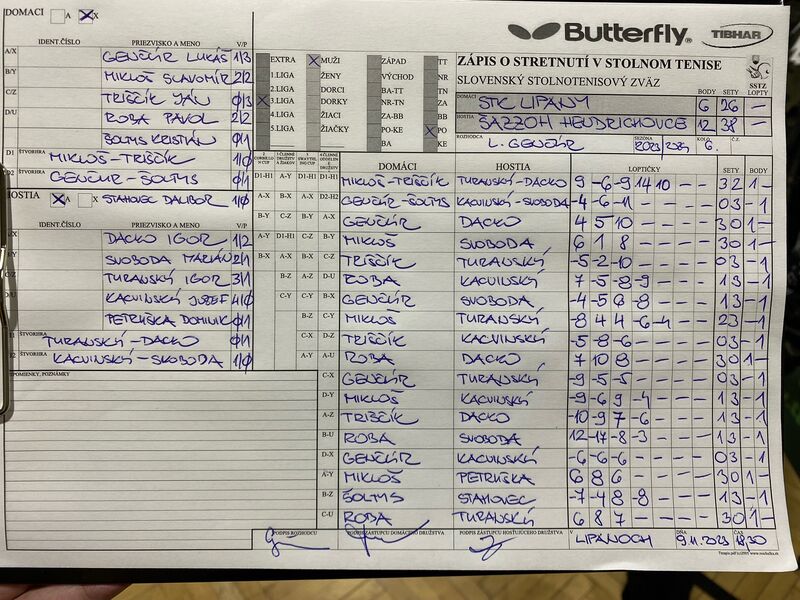 DOMACI A X
Butterfly TIBHAR
IDENT.ČÍSLO PRIEZVISKO A MENO V/P
A/X GENČÚR LUKÁŠ 1/3
B/Y MIKLOŠ SLAVOMÍR 2/2
C/Z TRIŠČÍK JÁN 0/3
D/U ROBA PAVOL 2/2
ŠOLTYS KRISTIÁN 0/1
D1 ŠTVORHRA MIKLOŠ-TRIŠČÍK 1/0
D2 GENČÚR-ŠOLTYS 0/1
EXTRA X MUŽI ZÁPAD TT
1.LIGA ŽENY VÝCHOD NR
2.LIGA DORCI BA-TT TN
X 3.LIGA DORKY NR-TN ZA
4.LIGA ŽIACI ZA-BB BB
5.LIGA ŽIAČKY PO-KE X PO
BA KE
ZÁPIS O STRETNUTÍ V STOLNOM TENISE
SLOVENSKÝ STOLNOTENISOVÝ ZVÄZ
SSTZ
BODY SETY LOPTY
DOMÁCI STK LIPANY 6 26 -
HOSTIA ŠAZZOH HENDRICHOVCE 12 38 -
ROZHODCA L. GENČÚR SEZÓNA 2023/2024 KOLO 6. Č.Z.
HOSTIA X A X STAHOVEC DALIBOR 1/0
IDENT.ČÍSLO PRIEZVISKO A MENO V/P
DACKO IGOR 1/2
SVOBODA MARIÁN 2/1
TURANSKÝ IGOR 3/1
KACVINSKÝ JOZEF 4/0
PETRUŠKA DOMINIK 0/1
ŠTVORHRA TURANSKÝ-DACKO 0/1
KACVINSKÝ-SVOBODA 1/0
POZNÁMKY
DOMÁCI HOSTIA LOPTIČKY SETY BODY
D1-H1 A-Y D1-H1 D1-H1 MIKLOŠ-TRIŠČÍK TURANSKÝ-DACKO 9 -6 -9 14 10 - - 3 2 1 -
D2-H2 GENČÚR-ŠOLTYS KACVINSKÝ-SVOBODA -4 -6 -11 - - - - 0 3 - 1
A-X GENČÚR DACKO 4 5 10 - - - - 3 0 1 -
B-Y MIKLOŠ SVOBODA 6 1 8 - - - - 3 0 1 -
C-Z TRIŠČÍK TURANSKÝ -5 -2 -10 - - - - 0 3 - 1
D-U ROBA KACVINSKÝ 7 -5 -8 -9 - - - 1 3 - 1
A-Y GENČÚR SVOBODA -4 -5 6 -8 - - - 1 3 - 1
B-Z MIKLOŠ TURANSKÝ -8 4 4 -6 -4 - - 2 3 - 1
TRIŠČÍK KACVINSKÝ -5 -8 -6 - - - - 0 3 - 1
ROBA DACKO 7 10 8 - - - - 3 0 1 -
C-X GENČÚR TURANSKÝ -9 -5 -5 - - - - 0 3 - 1
D-Y MIKLOŠ KACVINSKÝ -9 -6 9 -4 - - - 1 3 - 1
A-Z TRIŠČÍK DACKO -10 -9 7 -6 - - - 1 3 - 1
B-U ROBA SVOBODA 12 -17 -8 -3 - - - 1 3 - 1
D-X GENČÚR KACVINSKÝ -6 -6 -6 - - - - 0 3 - 1
A-Y MIKLOŠ PETRUŠKA 6 8 6 - - - - 3 0 1 -
B-Z ŠOLTYS STAHOVEC -7 -4 8 -8 - - - 1 3 - 1
C-U ROBA TURANSKÝ 6 8 7 - - - - 3 0 1 -
PODPIS ROZHODCU PODPIS ZÁSTUPCU DOMÁCEHO DRUŽSTVA PODPIS ZÁSTUPCU HOSŤUJÚCEHO DRUŽSTVA V LIPANOCH DŇA 9.11.2023 ČAS 18.30